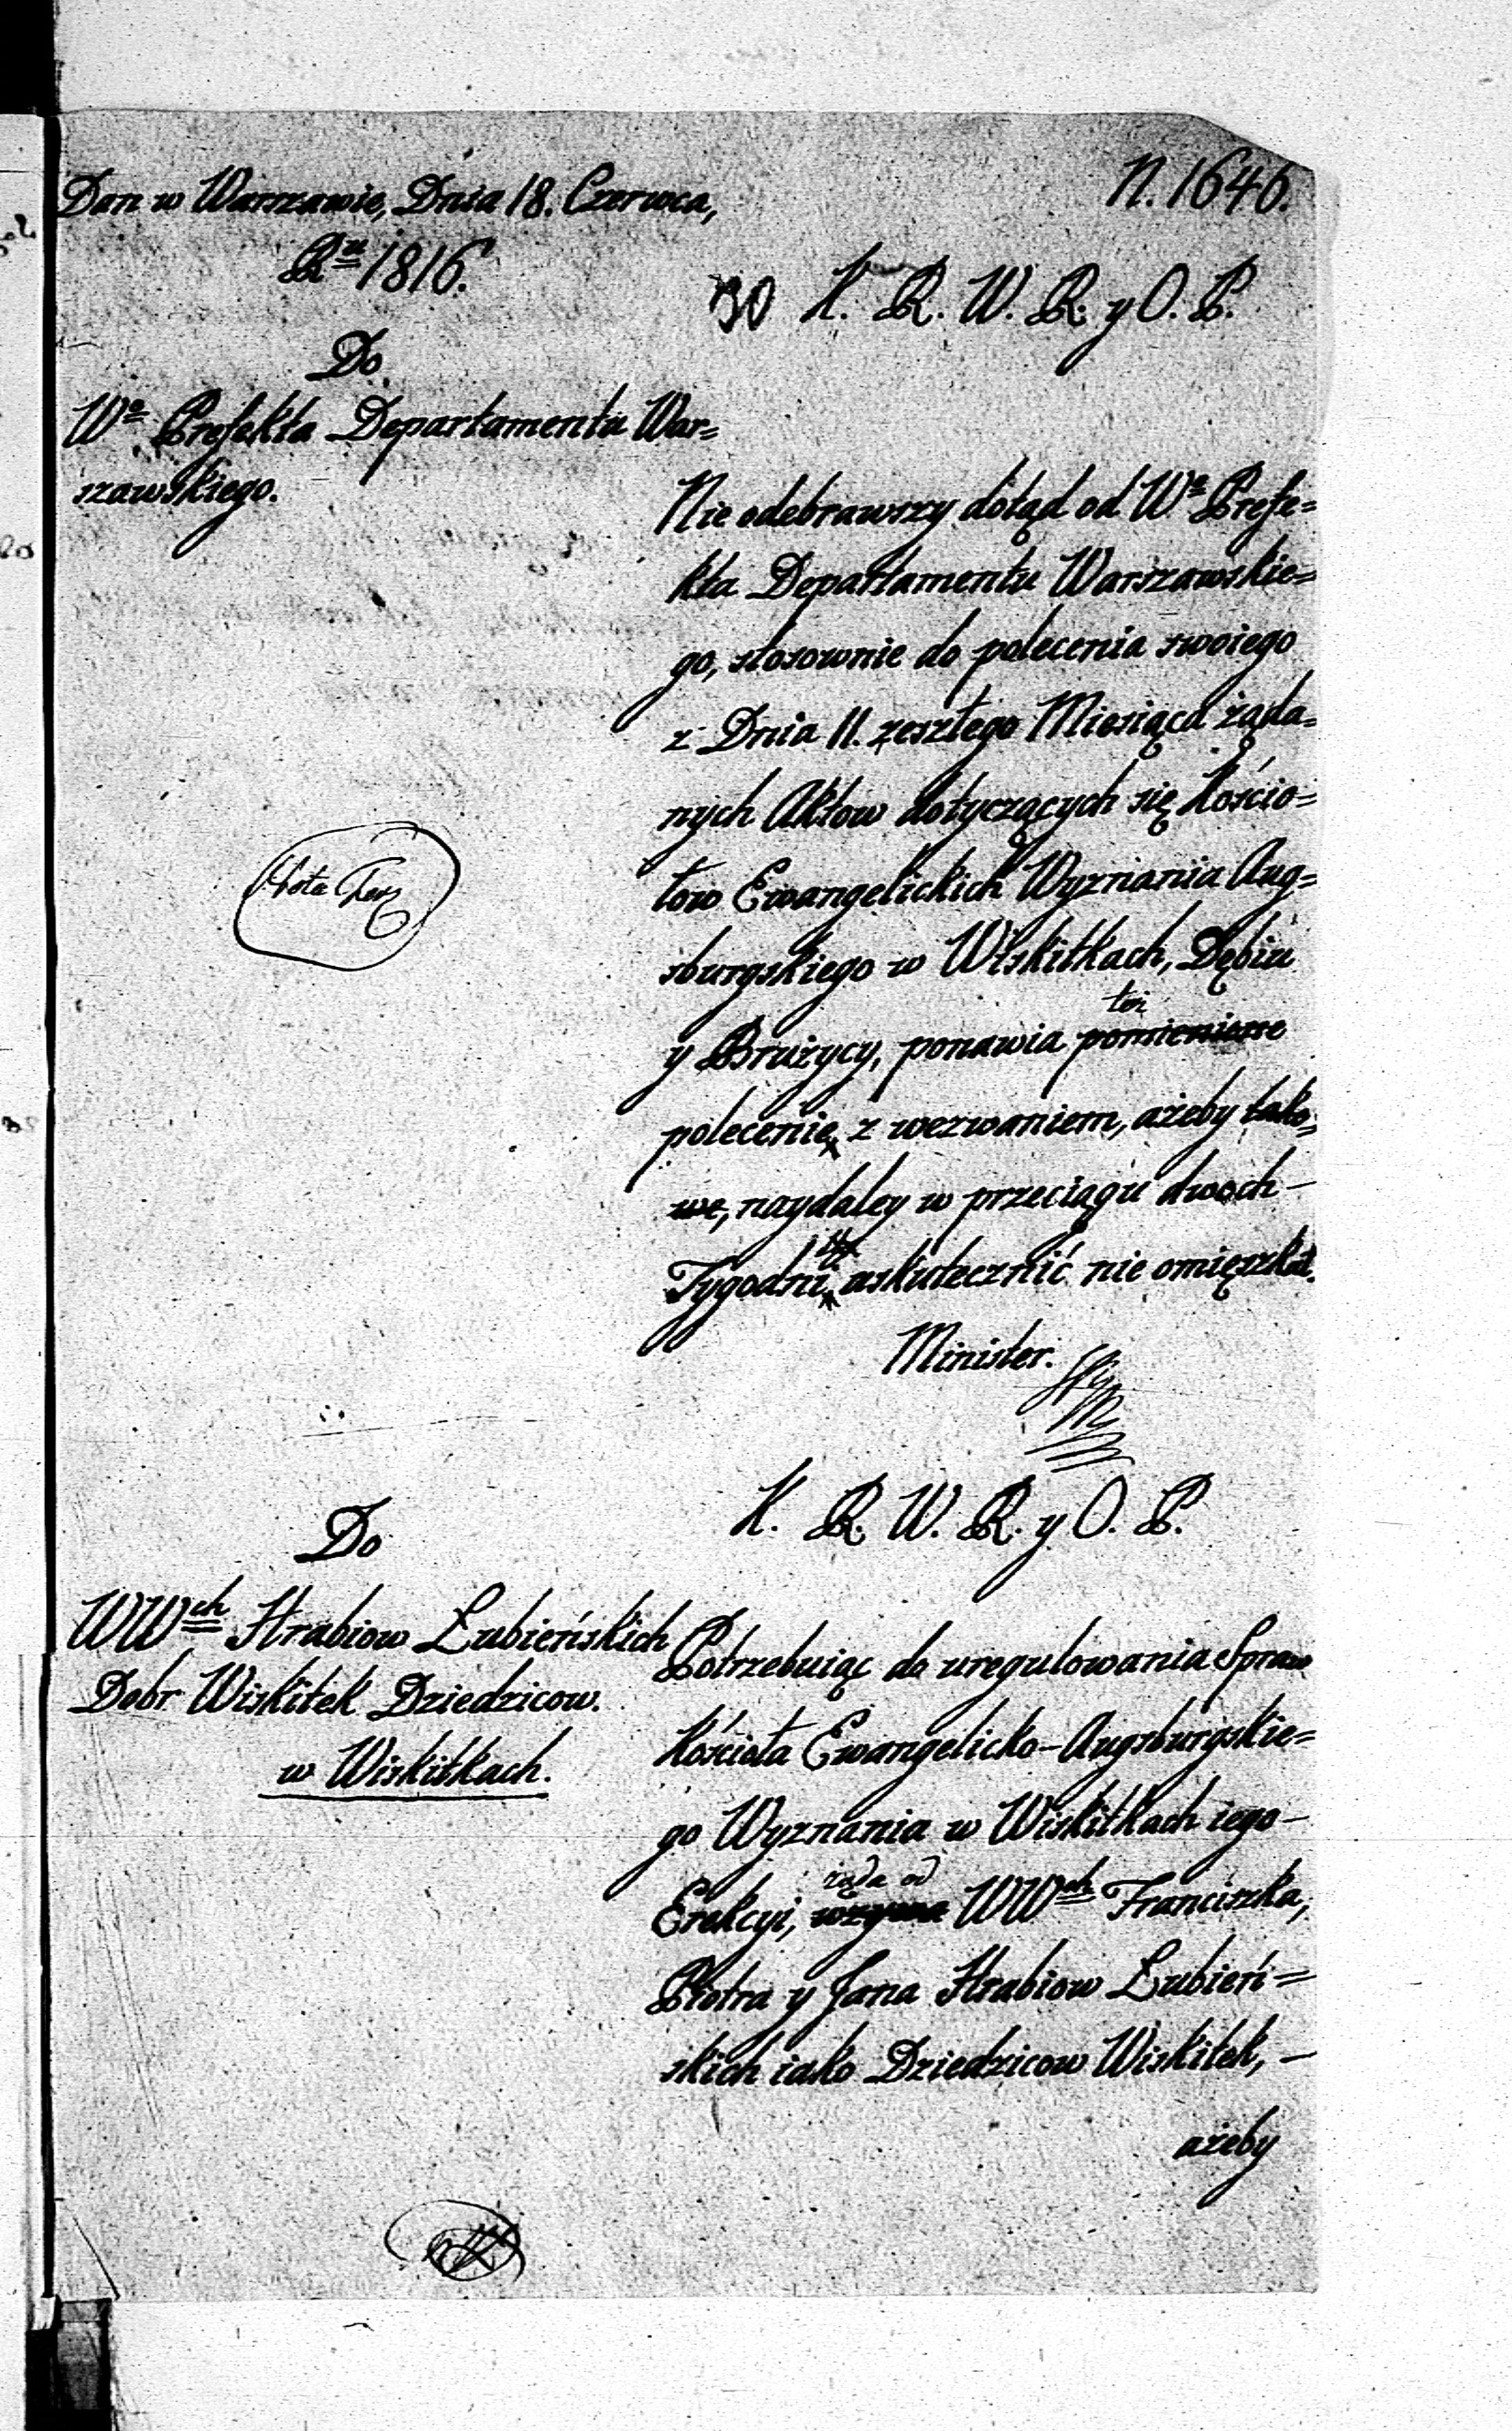 N. 1646.
Dan w Warszawie, Dnia 18. Czerwca,
Ru 1816.
90 K. R. W. R. y O. P.
Do
Wo Prefekta Departamentu War=
szawskiego.
Nie odebrawszy dotąd od Wo Prefe=
kta Departamentu Warszawskie=
go, stosownie do polecenia swoiego
z Dnia 11. zeszłego Miesiąca żąda=
nych Aktow dotyczących się Kościo=
łow Ewangelickich Wyznania Aug=
sburgskiego w Wiskitkach, Dębiu
też
y Brużycy, ponawia pomienione
polecenie, z wezwaniem, ażeby tako=
we, naydaley w przeciągu dwoch —
Tygodni, uskutecznić nie omięszkał.
Minister.
K. R. W. R. y O. P.
Do
WWch Hrabiow Łubieńskich
Dobr Wiskitek Dziedzicow.
w Wiskitkach.
Potrzebuiąc do uregulowania Spraw
Kościoła Ewangelicko-Augsburgskie=
go Wyznania w Wiskitkach iego —
żąda od
Erekcyi, wzywa WWch Franciszka,
Piotra y Jana Hrabiow Łubień=
skich iako Dziedzicow Wiskitek, —
ażeby